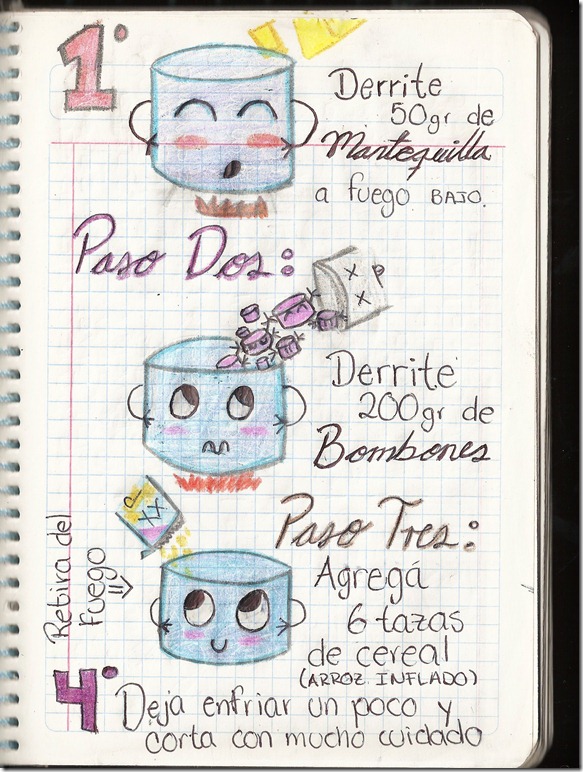 1°
Derrite
50gr de
Mantequilla
a fuego BAJO.
Paso Dos:
x p
x
Derrite
200gr de
Bombones
C
XX
Paso Tres:
Retira del
fuego =>
Agregá
6 tazas
de cereal
(ARROZ INFLADO)
4°
Deja enfriar un poco y
corta con mucho cuidado